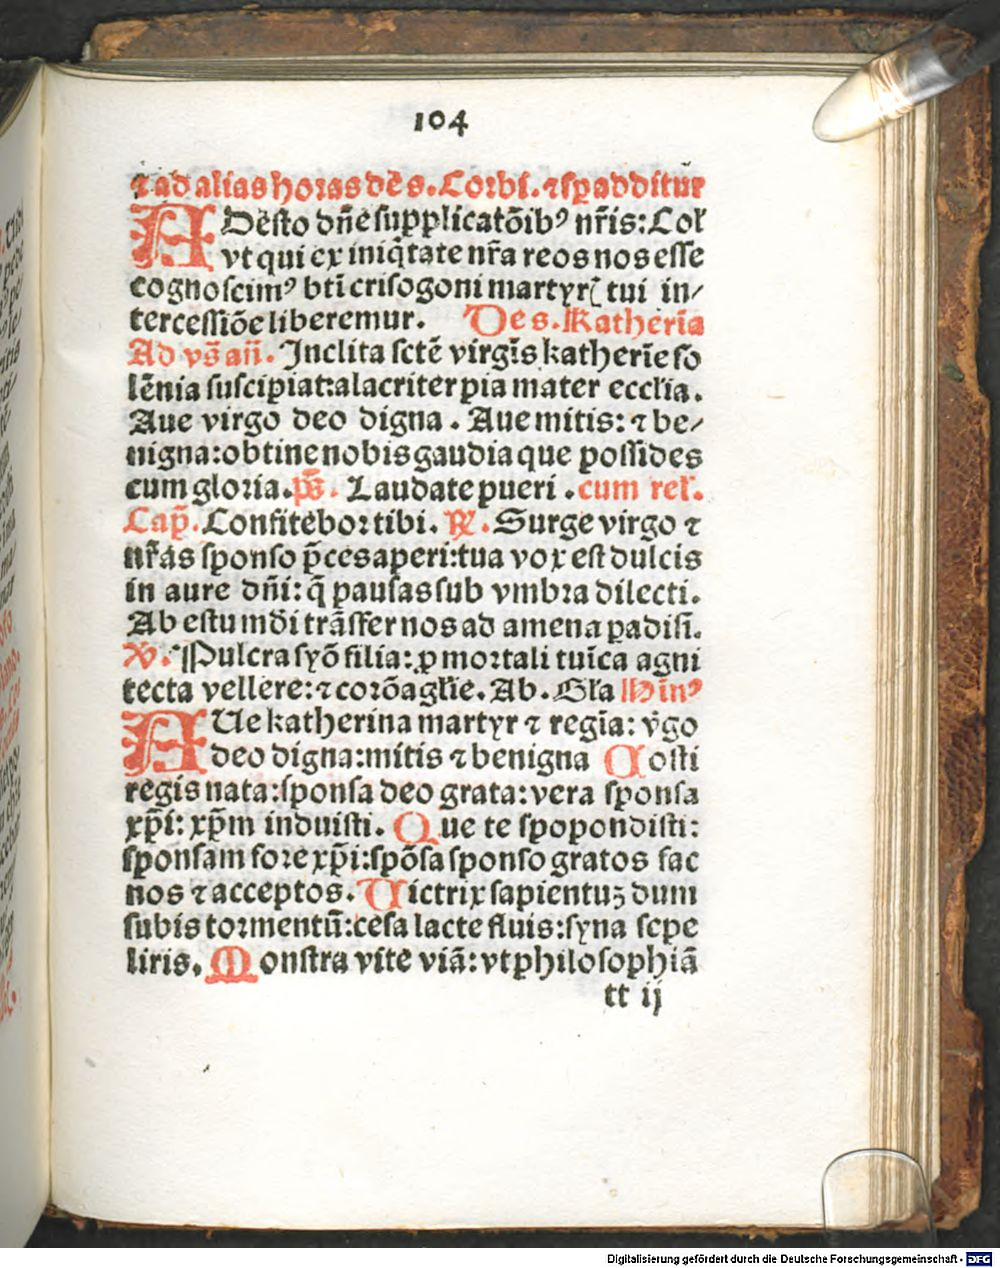 104
⁊ ad alias horas dẽ s. Corbi. ⁊ sp̱ additur
ADesto dñe supplicatõibꝰ nr̃is: Col
vt qui ex iniq̃tate nr̃a reos nos esse
cognoscimꝰ bti crisogoni martyrꝭ tui in⸗
tercessiõe liberemur. De s. Katherĩa
Ad vs̃ añ. Inclita sctẽ virgĩs katherĩe so
lẽnia suscipiat: alacriter pia mater ecclĩa.
Aue virgo deo digna. Aue mitis: ⁊ be⸗
nigna: obtine nobis gaudia que possides
cum gloria. ps̃. Laudate pueri. cum rel̃.
Cap̃. Confitebor tibi. ℟. Surge virgo ⁊
nr̃as sponso p̃ces aperi: tua vox est dulcis
in aure dñi: q̃ pausas sub vmbra dilecti.
Ab estu mũdi trãsfer nos ad amena padisi.
℣. Pulcra syõ filia: ꝓ mortali tuĩca agni
tecta vellere: ⁊ corõa glĩe. Ab. Gl̃a Hĩnꝰ
AUe katherina martyr ⁊ regĩa: ṽgo
deo digna: mitis ⁊ benigna Costi
regis nata: sponsa deo grata: vera sponsa
xp̃i: xp̃m induisti. Que te spopondisti:
sponsam fore xp̃i: spõsa sponso gratos fac
nos ⁊ acceptos. Uictrix sapientuꝫ dum
subis tormentũ: cesa lacte fluis: syna sepe
liris. Monstra vite viã: vt philosophiã
tt ij
Digitalisierung gefördert durch die Deutsche Forschungsgemeinschaft - DFG